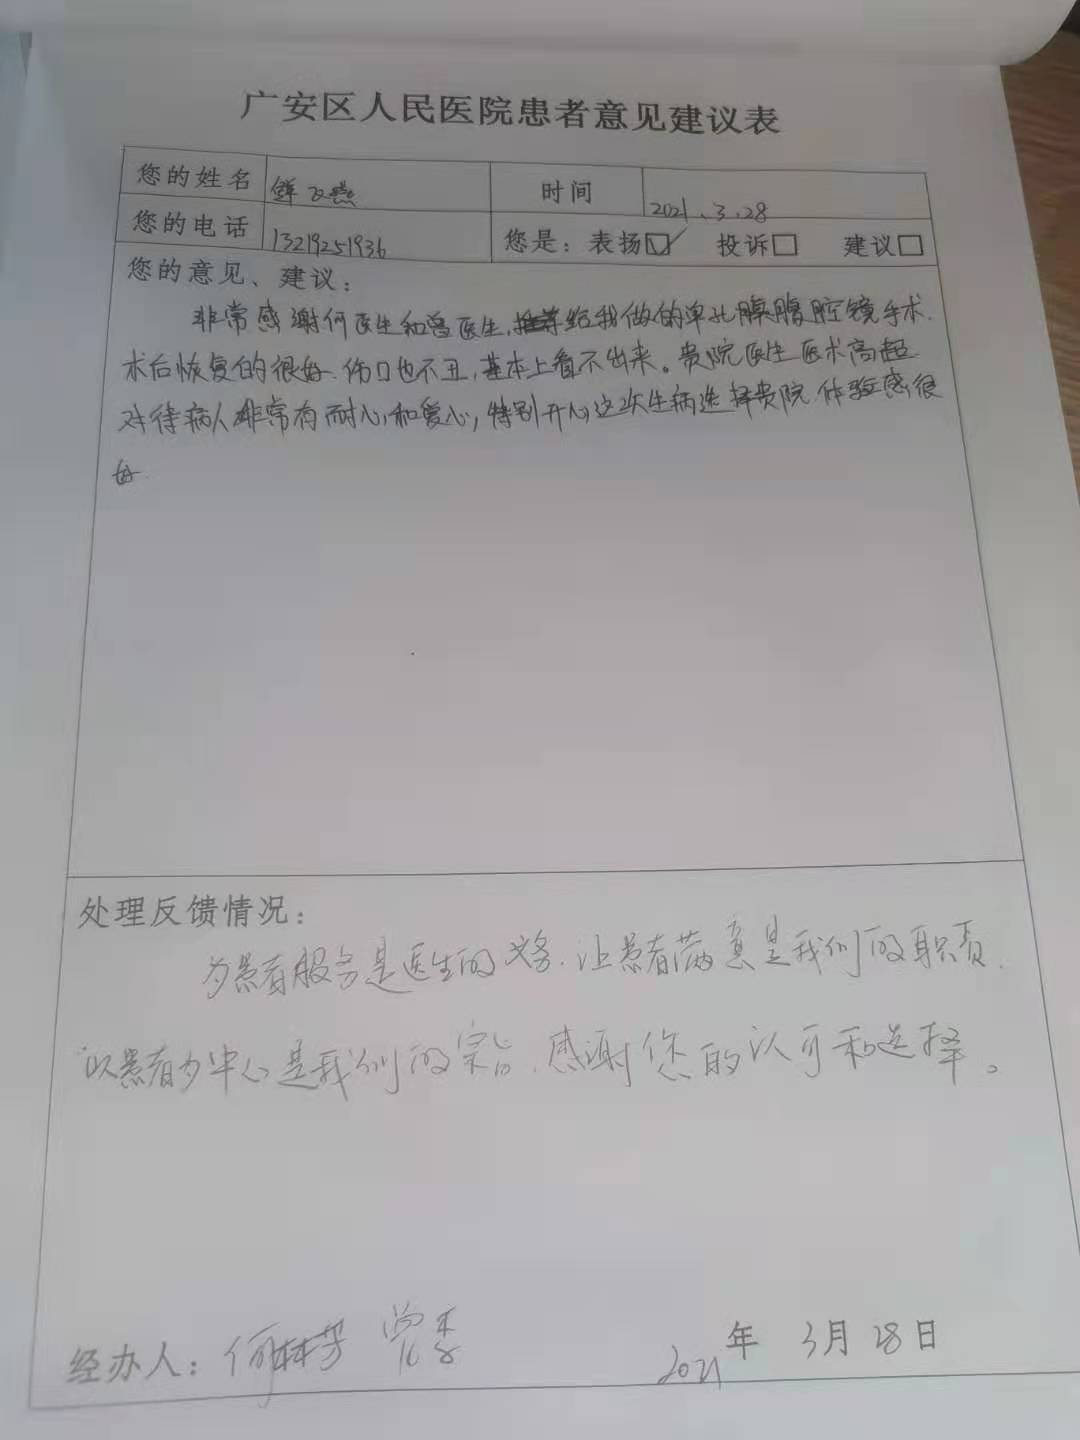 广安区人民医院患者意见建议表
您的姓名 鲜 燕 时间 2021.3.28
您的电话 13219251936 您是：表扬☑ 投诉□ 建议□
您的意见、建议：
非常感谢何医生和曾医生，给我做的单孔腹腔镜手术.
术后恢复的很好.伤口也不丑，基本上看不出来。贵院医生医术高超
对待病人非常有耐心和爱心，特别开心这次生病选择贵院.体验感很
好.
处理反馈情况：
为患者服务是医生的义务.让患者满意是我们的职责.
以患者为中心是我们的宗旨.感谢您的认可和选择。
经办人：何林芳 2021年 3月 28日